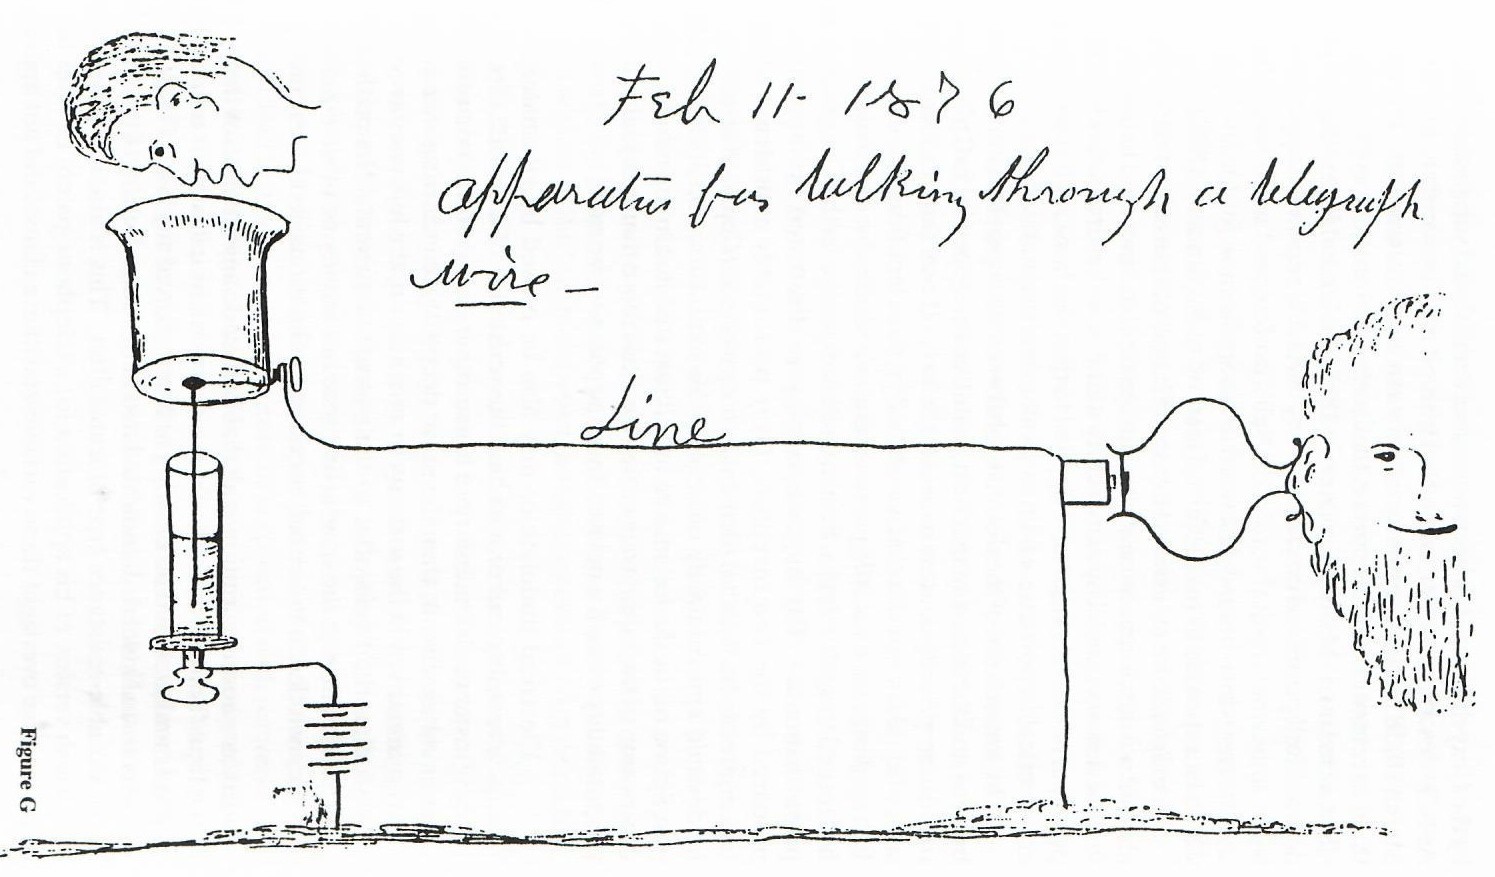 Feb 11- 1876
apparatus for talking through a telegraph
wire –
Line
Figure G